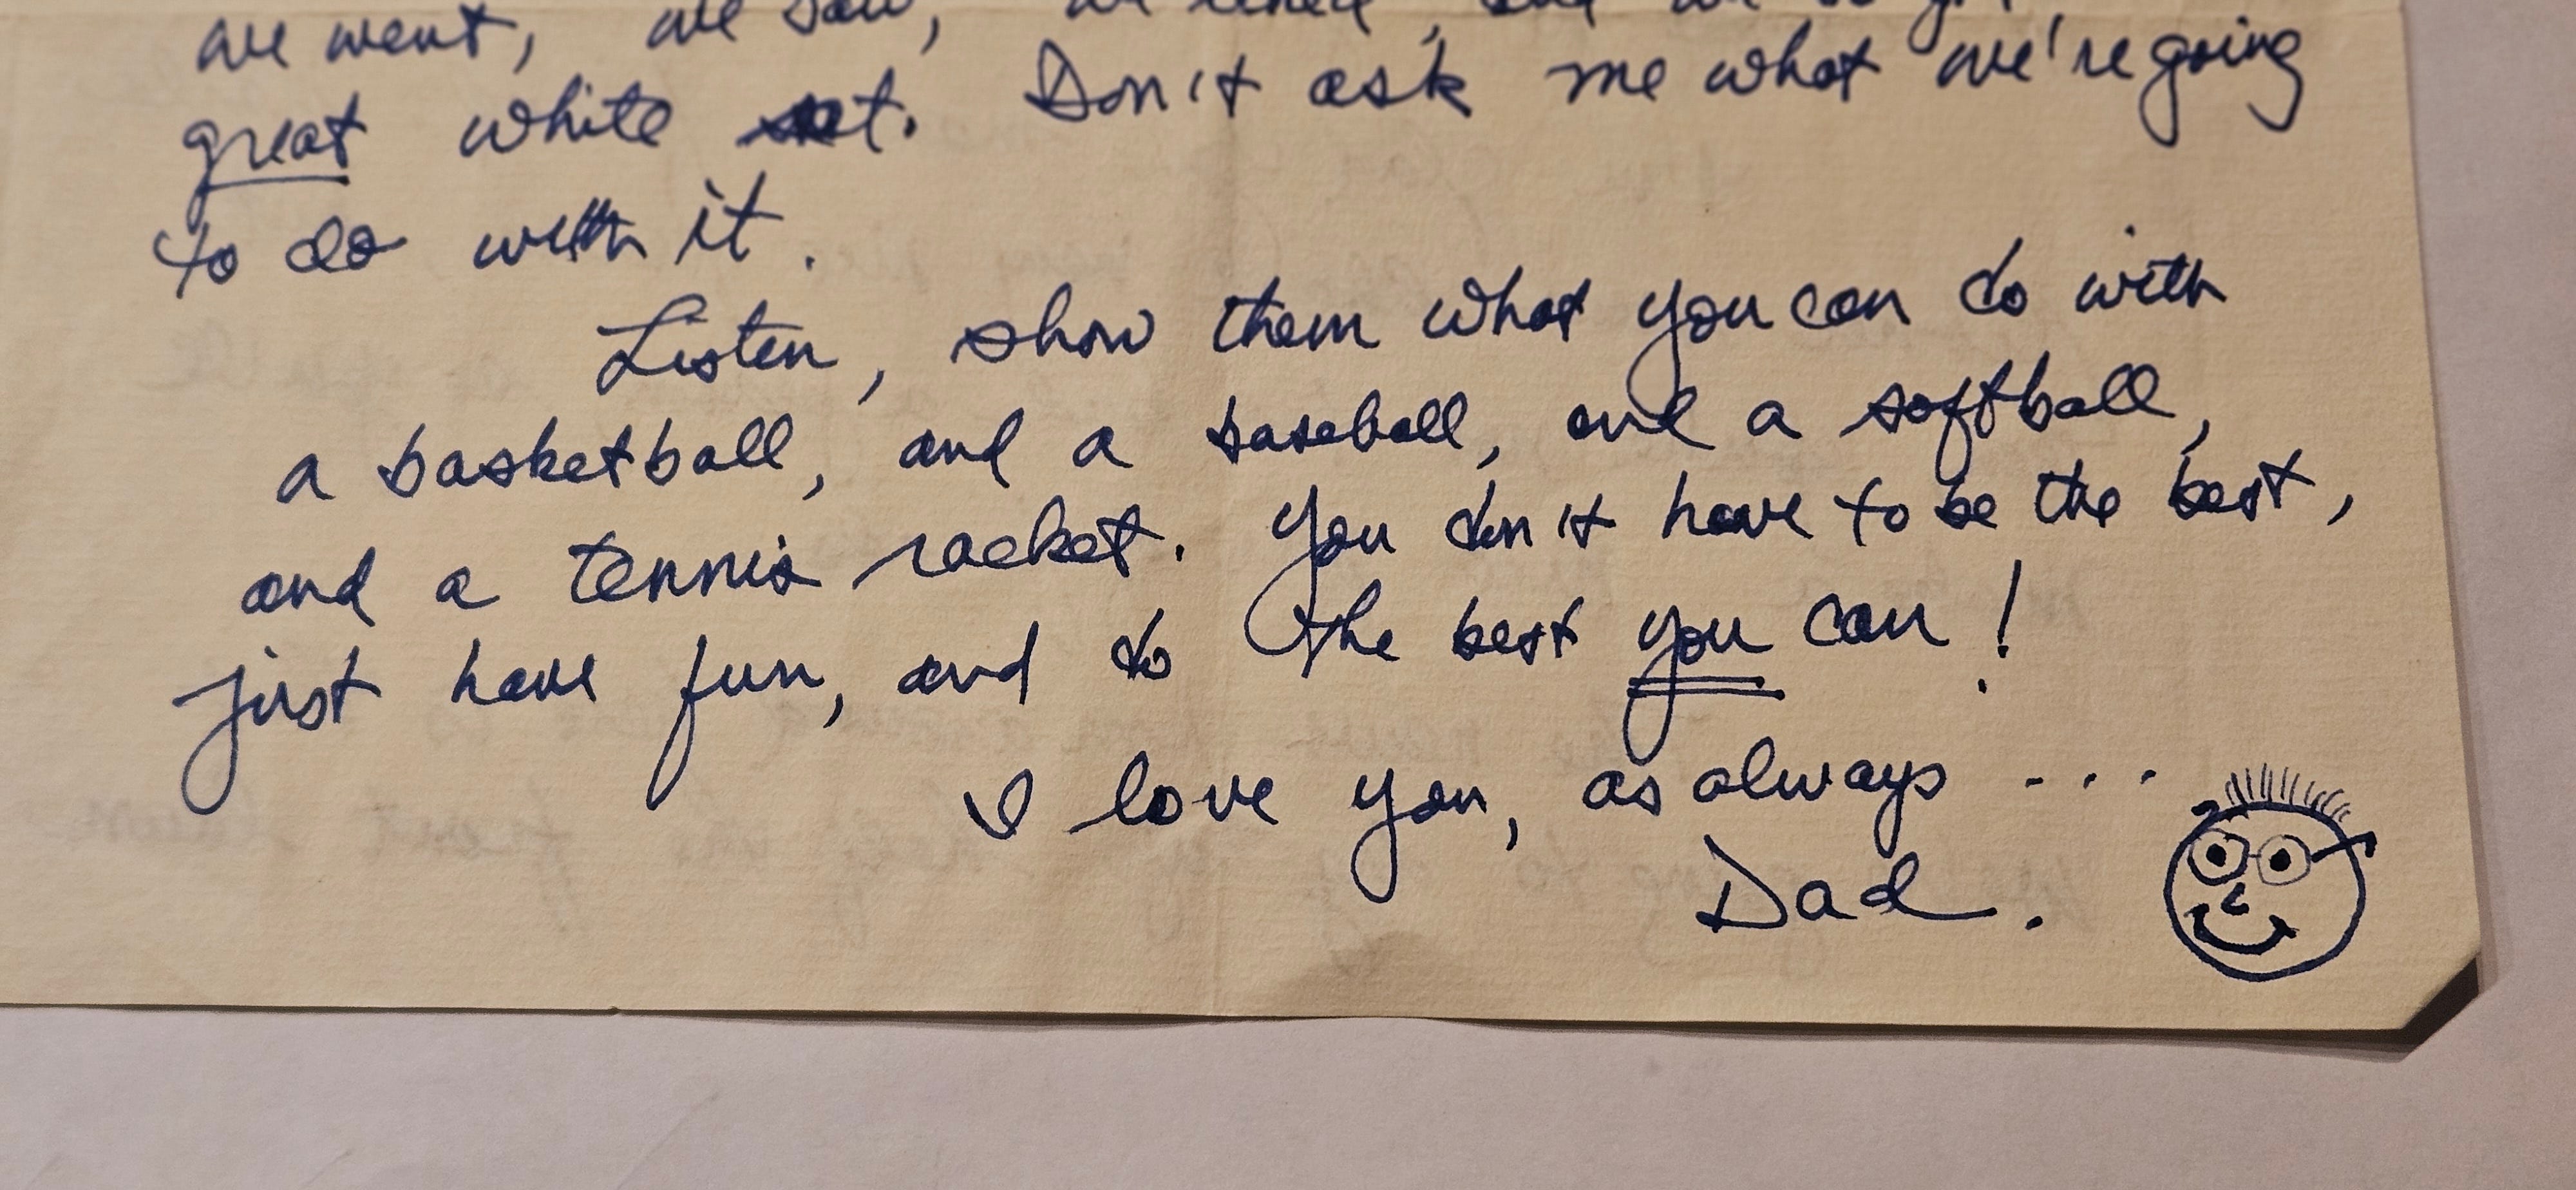 we went, we saw,
great white
. Don't ask me what we're going
to do with it.
Listen, show them what you can do with
a basketball, and a baseball, and a softball,
and a tennis racket. You don't have to be the best,
just have fun, and do the best you can!
I love you, as always ...
Dad.